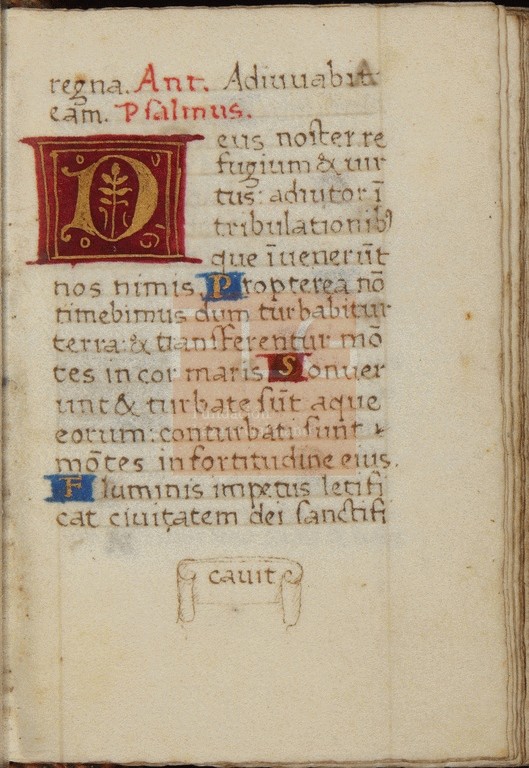 regna. Ant. Adiuuabit
eam. Psalmus.
Deus noster re
fugium & uir
tus: adiutor ī
tribulationib)
que īuenerūt
nos nimis. Propterea nō
timebimus dum turbabitur
terra: & transferentur mō
tes in cor maris Sonuer
unt & turbate sūt aque
eorum: conturbati sunt
mōtes in fortitudine eius.
Fluminis impetus letifi
cat ciuitatem dei sanctifi
cauit